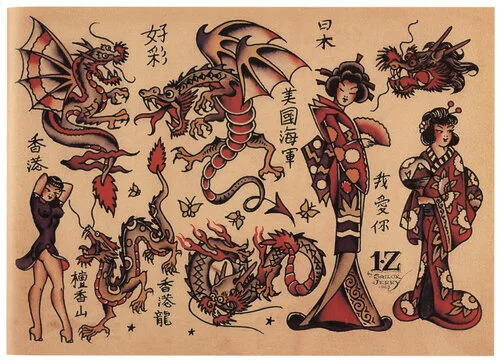 好彩
日本
美國海軍
香港
我愛你
1·Z
by
SAILOR
JERRY
檀香山
香港龍